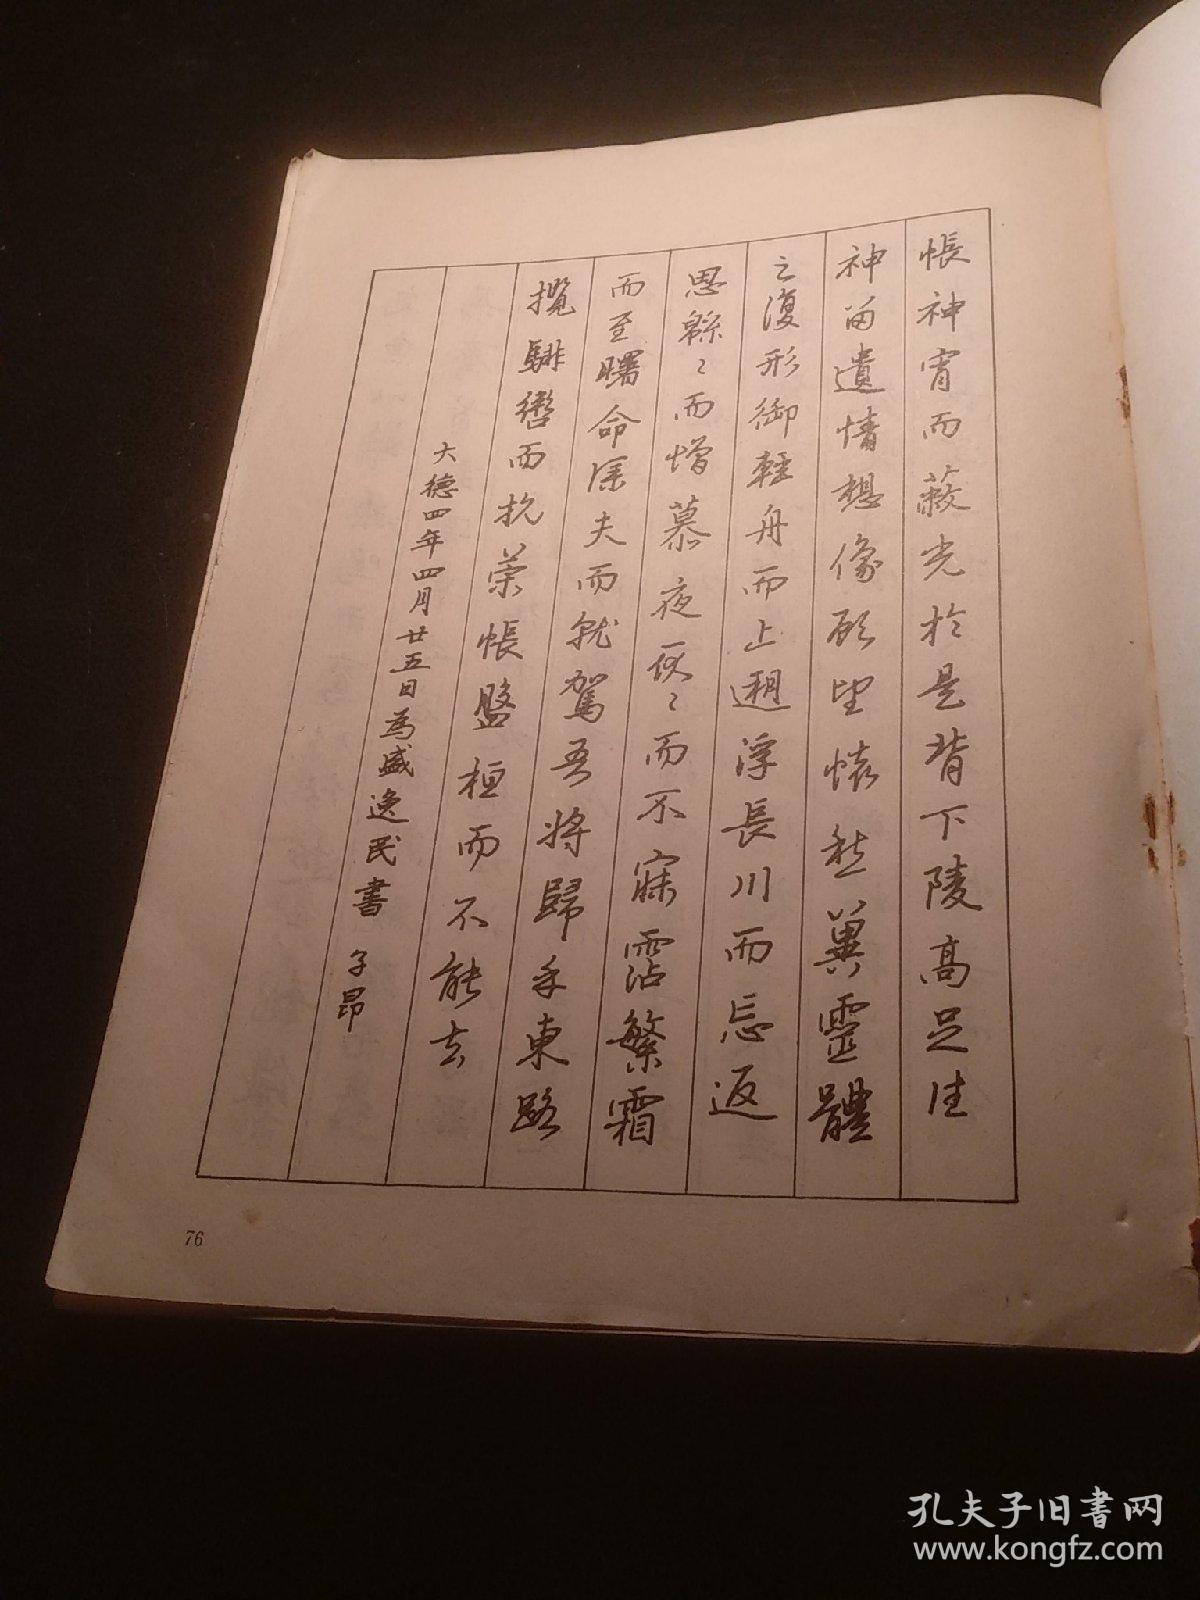 悵神宵而蔽光於是背下陵高足往
神留遺情想像顧望懷愁冀靈體
之復形御輕舟而上遡浮長川而忘返
思緜〻而增慕夜耿〻而不寐霑繁霜
而至曙命僕夫而就駕吾將歸乎東路
攬騑轡而抗策悵盤桓而不能去
大德四年四月廿五日為盛逸民書 子昂
76
孔夫子旧书网
www.kongfz.com